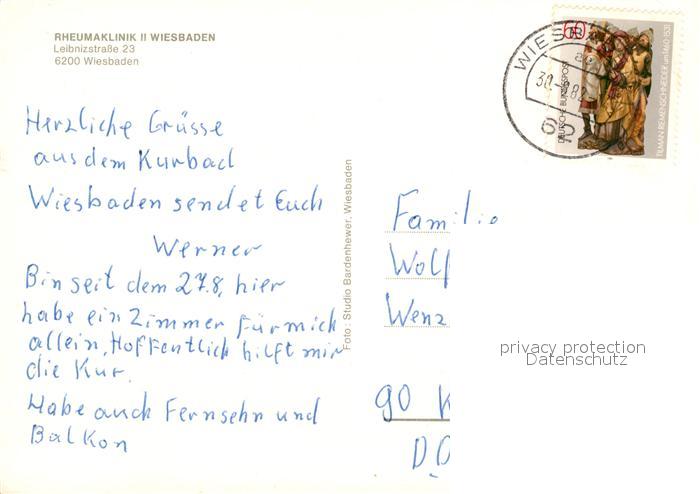 RHEUMAKLINIK II WIESBADEN
Leibnizstraße 23
6200 Wiesbaden
Herzliche Grüsse
aus dem Kurbad
Wiesbaden sendet Euch
Werner
Bin seit dem 27.8, hier
habe ein Zimmer für mich
allein, Hoffentlich hilft mir
die Kur.
Habe auch Fernsehn und
Balkon
Foto: Studio Bardenhewer, Wiesbaden
WIES
60
DEUTSCHE BUNDESPOST
TILMAN RIEMENSCHNEIDER um 1460-1531
Familie
Wolf
Wenz
privacy protection
Datenschutz
90 K
DD